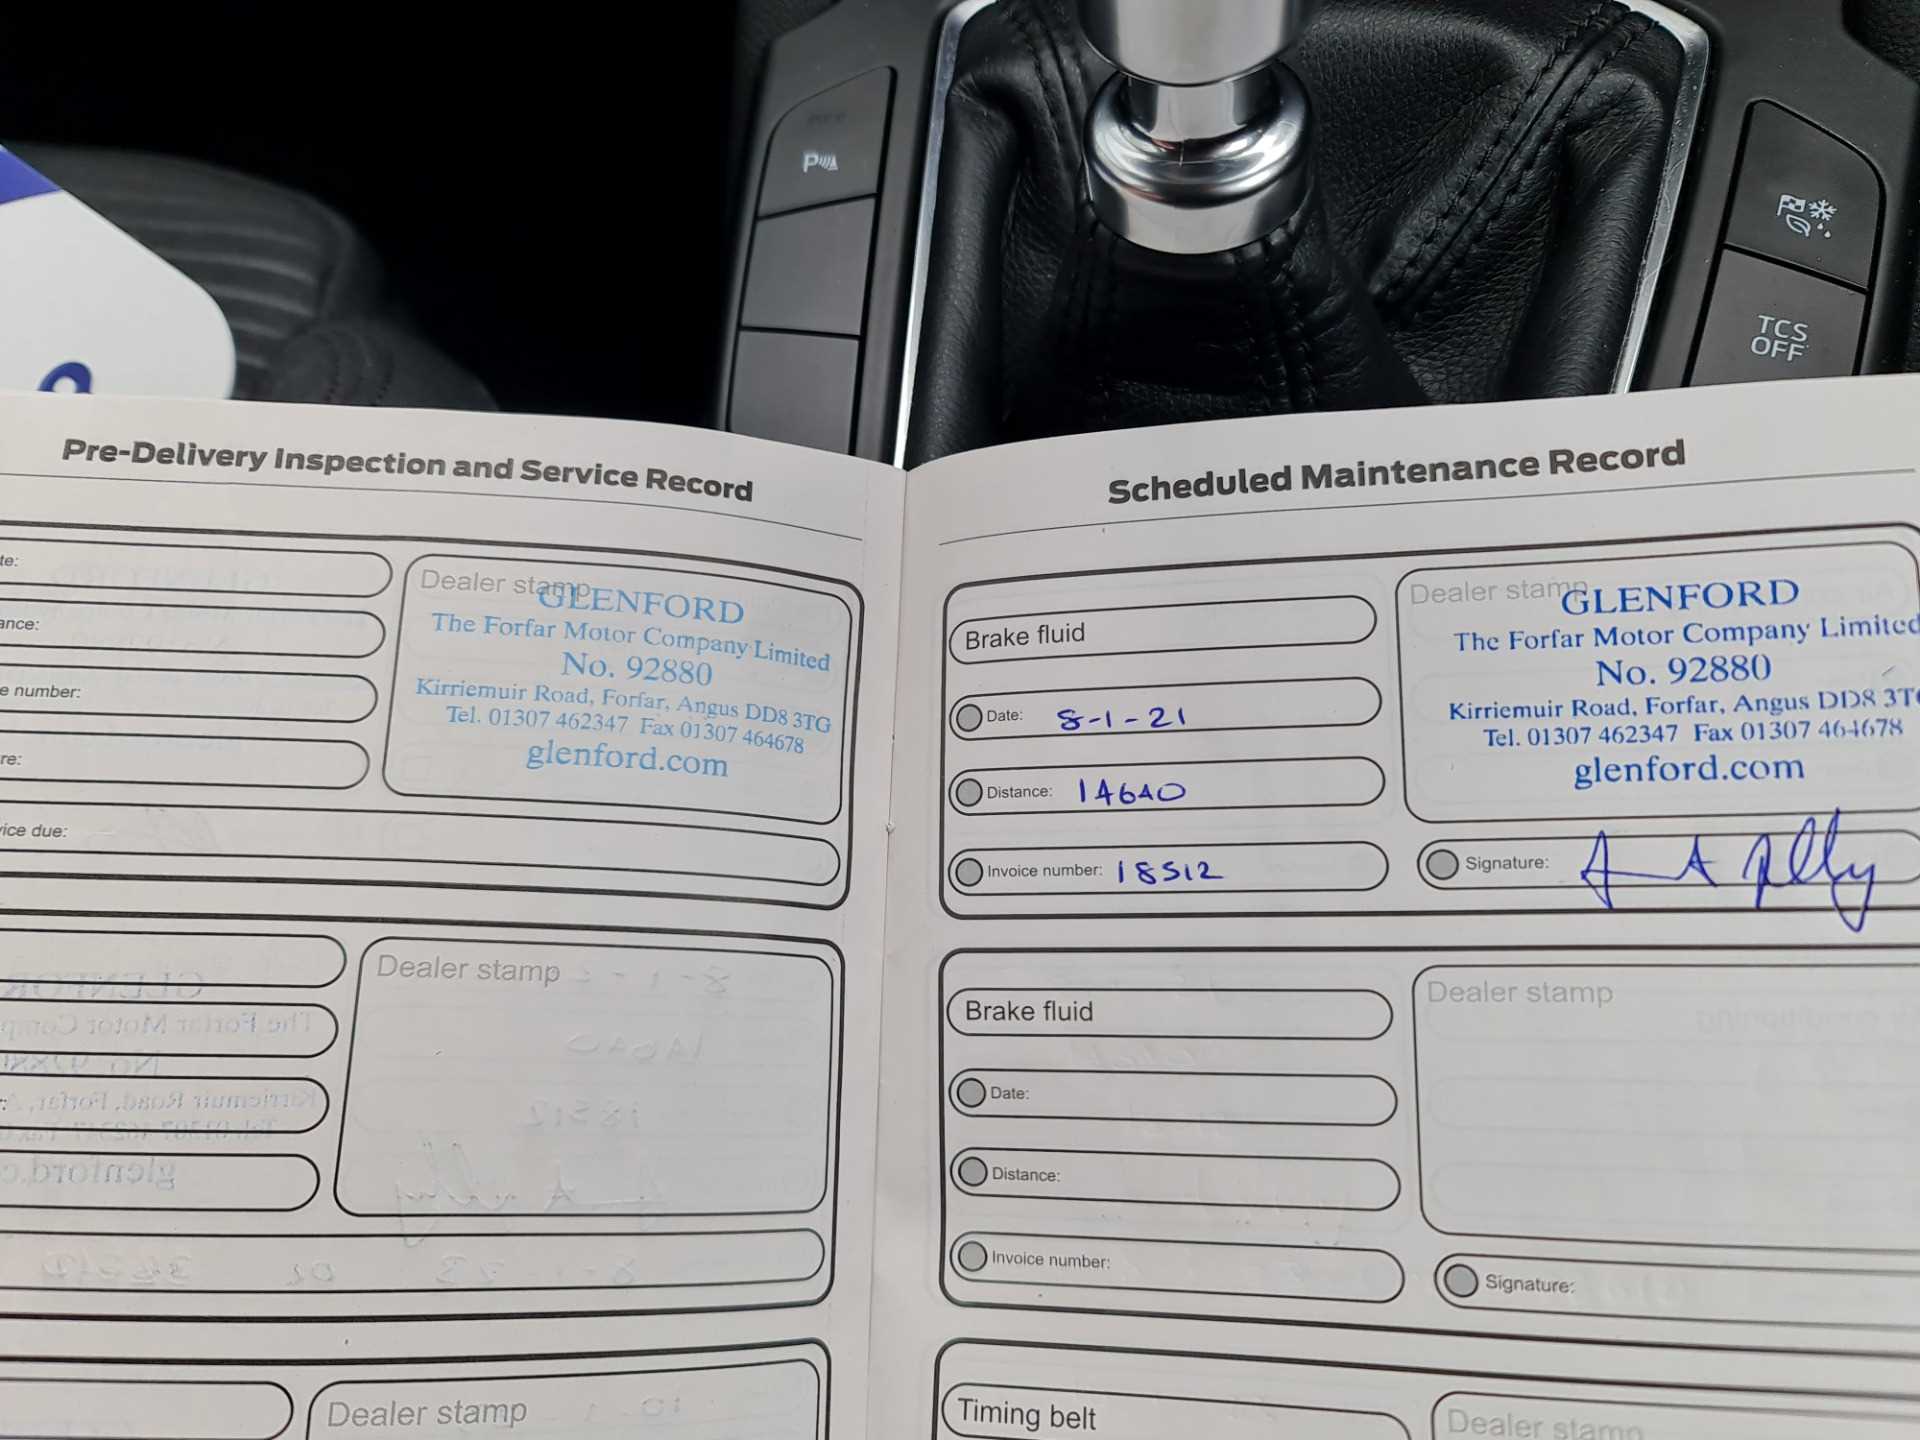 P
TCS
OFF
Pre-Delivery Inspection and Service Record
te:
ance:
e number:
re:
vice due:
Dealer stamp
GLENFORD
The Forfar Motor Company Limited
No. 92880
Kirriemuir Road, Forfar, Angus DD8 3TG
Tel. 01307 462347 Fax 01307 464678
glenford.com
Dealer stamp
Dealer stamp
Scheduled Maintenance Record
Brake fluid
Date: 8-1-21
Distance: 14640
Invoice number: 18512
Dealer stamp
GLENFORD
The Forfar Motor Company Limited
No. 92880
Kirriemuir Road, Forfar, Angus DD8 3TG
Tel. 01307 462347 Fax 01307 464678
glenford.com
Signature:
Brake fluid
Date:
Distance:
Invoice number:
Dealer stamp
Signature:
Timing belt
Dealer stamp